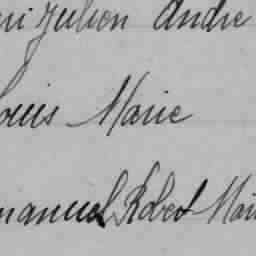 ri Julien André
Louis Marie
manuel Robert Mari